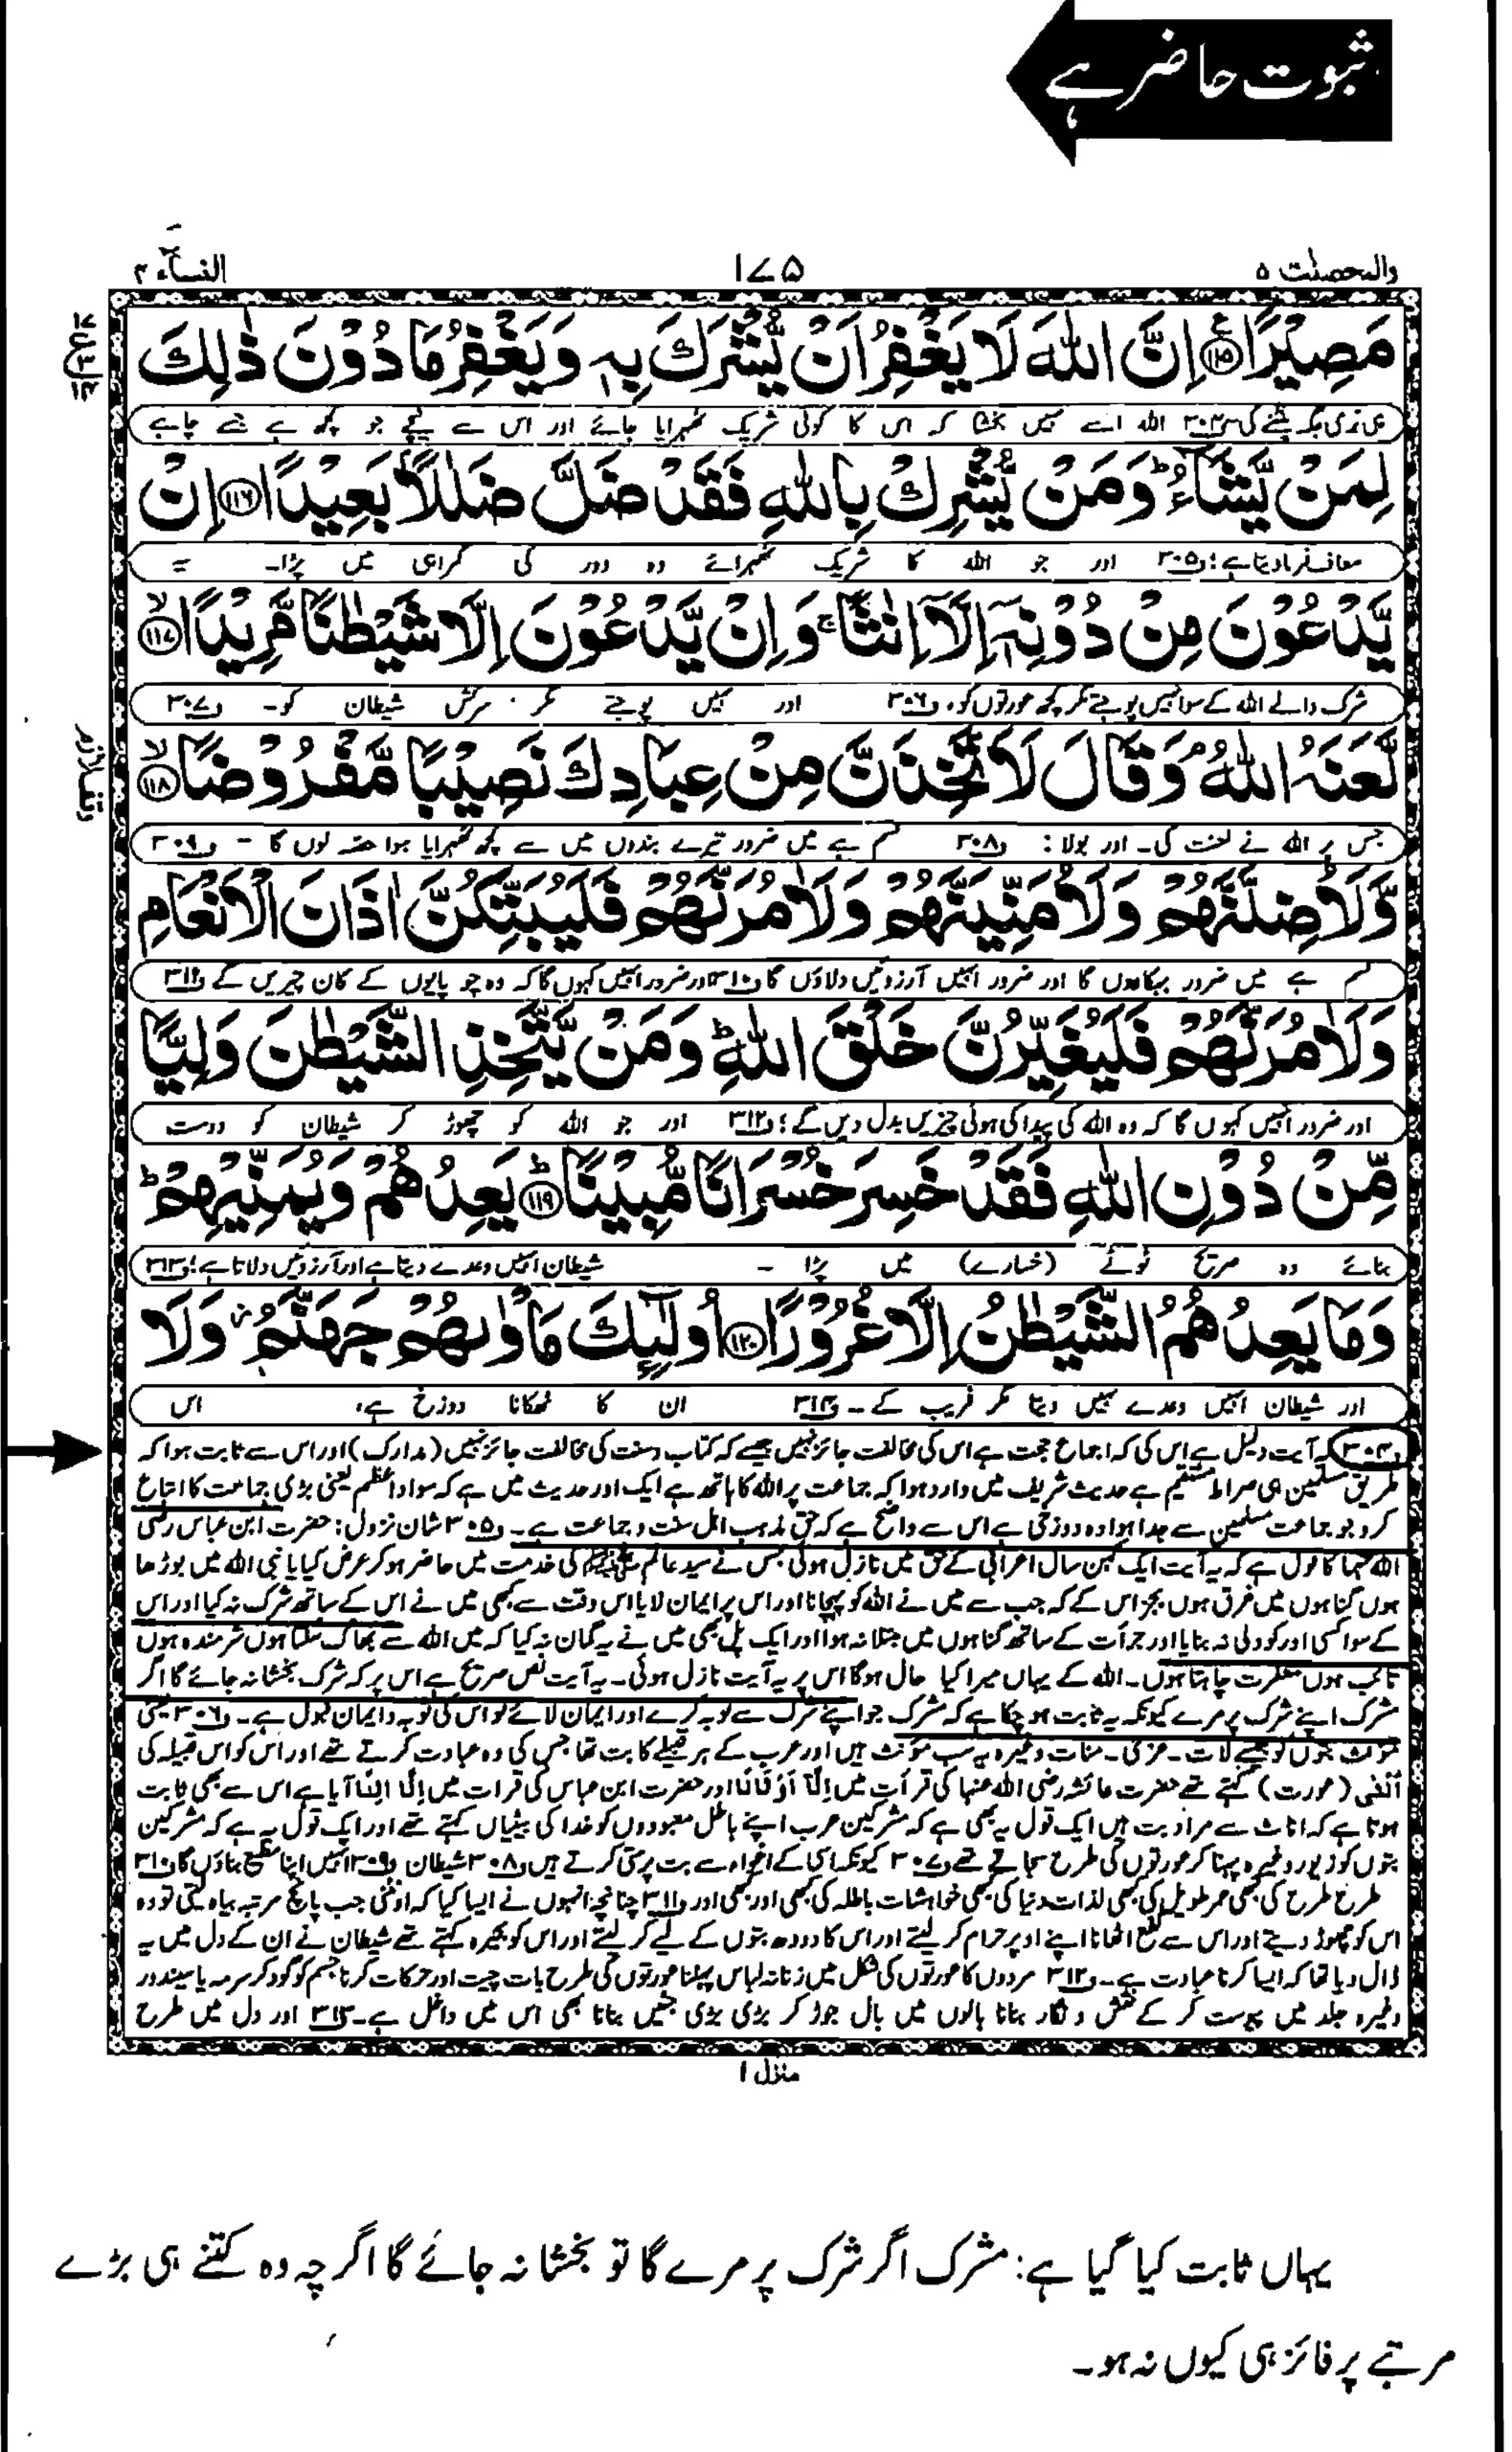 ثبوت حاضر ہے
والمحصنٰت ۵
۱۷۵
النسآء ۴
مَصِیْرًا ﴿۱۱۵﴾ اِنَّ اللّٰهَ لَا یَغْفِرُ اَنْ یُّشْرَكَ بِهٖ وَ یَغْفِرُ مَا دُوْنَ ذٰلِكَ
بری جگہ پلٹنے کی ف۳۰۴ اللہ اسے نہیں بخشتا کہ اس کا کوئی شریک ٹھہرایا جائے اور اس سے نیچے جو کچھ ہے جسے چاہے
لِمَنْ یَّشَآءُ ؕ وَ مَنْ یُّشْرِكْ بِاللّٰهِ فَقَدْ ضَلَّ ضَلٰلًۢا بَعِیْدًا ﴿۱۱۶﴾ اِنْ
معاف فرما دیتا ہے؛ ف۳۰۵ اور جو اللہ کا شریک ٹھہرائے وہ دور کی گمراہی میں پڑا۔ یہ
یَّدْعُوْنَ مِنْ دُوْنِهٖۤ اِلَّاۤ اِنٰثًا ۚ وَ اِنْ یَّدْعُوْنَ اِلَّا شَیْطٰنًا مَّرِیْدًا ﴿۱۱۷﴾ ۙ
شرک والے اللہ کے سوا نہیں پوجتے مگر کچھ عورتوں کو، ف۳۰۶ اور نہیں پوجتے مگر سرکش شیطان کو۔ ف۳۰۷
لَّعَنَهُ اللّٰهُ ۘ وَ قَالَ لَاَتَّخِذَنَّ مِنْ عِبَادِكَ نَصِیْبًا مَّفْرُوْضًا ﴿۱۱۸﴾ ۙ
جس پر اللہ نے لعنت کی۔ اور بولا: ف۳۰۸ قسم ہے میں ضرور تیرے بندوں میں سے کچھ ٹھہرایا ہوا حصہ لوں گا - ف۳۰۹
وَّ لَاُضِلَّنَّهُمْ وَ لَاُمَنِّیَنَّهُمْ وَ لَاٰمُرَنَّهُمْ فَلَیُبَتِّكُنَّ اٰذَانَ الْاَنْعَامِ
قسم ہے میں ضرور بہکادوں گا اور ضرور انہیں آرزوئیں دلاؤں گا ف۳۱۰ اور ضرور انہیں کہوں گا کہ وہ چوپایوں کے کان چیریں گے ف۳۱۱
وَ لَاٰمُرَنَّهُمْ فَلَیُغَیِّرُنَّ خَلْقَ اللّٰهِ ؕ وَ مَنْ یَّتَّخِذِ الشَّیْطٰنَ وَلِیًّا
اور ضرور انہیں کہوں گا کہ وہ اللہ کی پیدا کی ہوئی چیزیں بدل دیں گے؛ ف۳۱۲ اور جو اللہ کو چھوڑ کر شیطان کو دوست
مِّنْ دُوْنِ اللّٰهِ فَقَدْ خَسِرَ خُسْرَانًا مُّبِیْنًا ؕ ﴿۱۱۹﴾ یَعِدُهُمْ وَ یُمَنِّیْهِمْ ؕ
بنائے وہ صریح ٹوٹے (خسارے) میں پڑا - شیطان انہیں وعدے دیتا ہے اور آرزوئیں دلاتا ہے؛ ف۳۱۳
وَ مَا یَعِدُهُمُ الشَّیْطٰنُ اِلَّا غُرُوْرًا ﴿۱۲۰﴾ اُولٰٓىِٕكَ مَاْوٰىهُمْ جَهَنَّمُ ۫ وَ لَا
اور شیطان انہیں وعدے نہیں دیتا مگر فریب کے۔ ف۳۱۴ ان کا ٹھکانا دوزخ ہے، اس
ف۳۰۴ یہ آیت دلیل ہے اس کی کہ اجماع حجت ہے اس کی مخالفت جائز نہیں جیسے کہ کتاب و سنت کی مخالفت جائز نہیں (مدارک) اور اس سے ثابت ہوا کہ
طریق مسلمین ہی صراط مستقیم ہے حدیث شریف میں وارد ہوا کہ جماعت پر اللہ کا ہاتھ ہے ایک اور حدیث میں ہے کہ سواد اعظم یعنی بڑی جماعت کا اتباع
کرو جو جماعت مسلمین سے جدا ہوا وہ دوزخی ہے اس سے واضح ہے کہ حق مذہب اہل سنت و جماعت ہے۔ ف۳۰۵ شان نزول: حضرت ابن عباس رضی
اللہ عنہما کا قول ہے کہ یہ آیت ایک کہن سال اعرابی کے حق میں نازل ہوئی جس نے سید عالم ﷺ کی خدمت میں حاضر ہو کر عرض کیا یا نبی اللہ میں بوڑھا
ہوں گناہوں میں غرق ہوں بجز اس کے کہ جب سے میں نے اللہ کو پہچانا اور اس پر ایمان لایا اس وقت سے کبھی میں نے اس کے ساتھ شرک نہ کیا اور اس
کے سوا کسی اور کو ولی نہ بنایا اور جرأت کے ساتھ گناہوں میں مبتلا نہ ہوا اور ایک پل بھی میں نے یہ گمان نہ کیا کہ میں اللہ سے بھاگ سکتا ہوں شرمندہ ہوں
تائب ہوں مغفرت چاہتا ہوں۔ اللہ کے یہاں میرا کیا حال ہوگا اس پر یہ آیت نازل ہوئی۔ یہ آیت نص صریح ہے اس پر کہ شرک بخشا نہ جائے گا اگر
مشرک اپنے شرک پر مرے کیونکہ یہ ثابت ہو چکا ہے کہ مشرک جو اپنے شرک سے توبہ کرے اور ایمان لائے تو اس کی توبہ و ایمان قبول ہے۔ ف۳۰۶ یعنی
مؤنث بتوں کو جیسے لات۔ عزیٰ۔ منات وغیرہ یہ سب مؤنث ہیں اور عرب کے ہر قبیلے کا بت تھا جس کی وہ عبادت کرتے تھے اور اس کو اس قبیلہ کی
اُنثٰی (عورت) کہتے تھے حضرت عائشہ رضی اللہ عنہا کی قرأت میں اِلَّا اَوْثَانًا اور حضرت ابن عباس کی قرات میں اِلَّا اُثُنًا آیا ہے اس سے بھی ثابت
ہوتا ہے کہ اناث سے مراد بت ہیں ایک قول یہ بھی ہے کہ مشرکین عرب اپنے باطل معبودوں کو خدا کی بیٹیاں کہتے تھے اور ایک قول یہ ہے کہ مشرکین
بتوں کو زیور وغیرہ پہنا کر عورتوں کی طرح سجاتے تھے ف۳۰۷ کیونکہ اسی کے اغواء سے بت پرستی کرتے ہیں ف۳۰۸ شیطان ف۳۰۹ انہیں اپنا مطیع بناؤں گا ف۳۱۰
طرح طرح کی کبھی عمر طویل کی کبھی لذات دنیا کی کبھی خواہشات باطلہ کی کبھی اور کبھی اور ف۳۱۱ چنانچہ انہوں نے ایسا کیا کہ اونٹنی جب پانچ مرتبہ بیاہ لیتی تو وہ
اس کو چھوڑ دیتے اور اس سے نفع اٹھانا اپنے اوپر حرام کر لیتے اور اس کا دودھ بتوں کے لیے کر لیتے اور اس کو بحیرہ کہتے تھے شیطان نے ان کے دل میں یہ
ڈال دیا تھا کہ ایسا کرنا عبادت ہے۔ ف۳۱۲ مردوں کا عورتوں کی شکل میں زنانہ لباس پہننا عورتوں کی طرح بات چیت اور حرکات کرنا جسم کو گود کر سرمہ یا سیندور
وغیرہ جلد میں پیوست کر کے نقش و نگار بنانا بالوں میں بال جوڑ کر بڑی بڑی جٹیں بنانا بھی اس میں داخل ہے۔ ف۳۱۳ اور دل میں طرح
منزل ۱
یہاں ثابت کیا گیا ہے: مشرک اگر شرک پر مرے گا تو بخشا نہ جائے گا اگرچہ وہ کتنے ہی بڑے
مرتبے پر فائز ہی کیوں نہ ہو۔